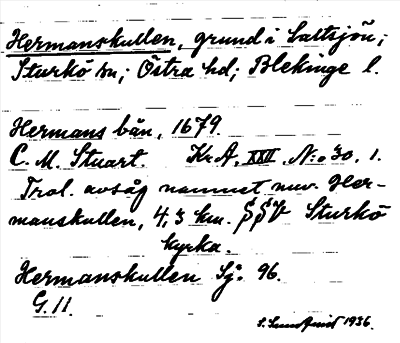 Hermanskullen, grund i Saltsjön;
Sturkö sn; Östra hd; Blekinge l.
Hermans bån, 1679.
C. M. Stuart. Kr A, XXII. N:o 30, 1.
Trol. avsåg namnet nuv. Her-
manskullen, 4,3 km. SSV Sturkö
kyrka.
Hermanskullen Sj. 96.
G. 11.
1936.